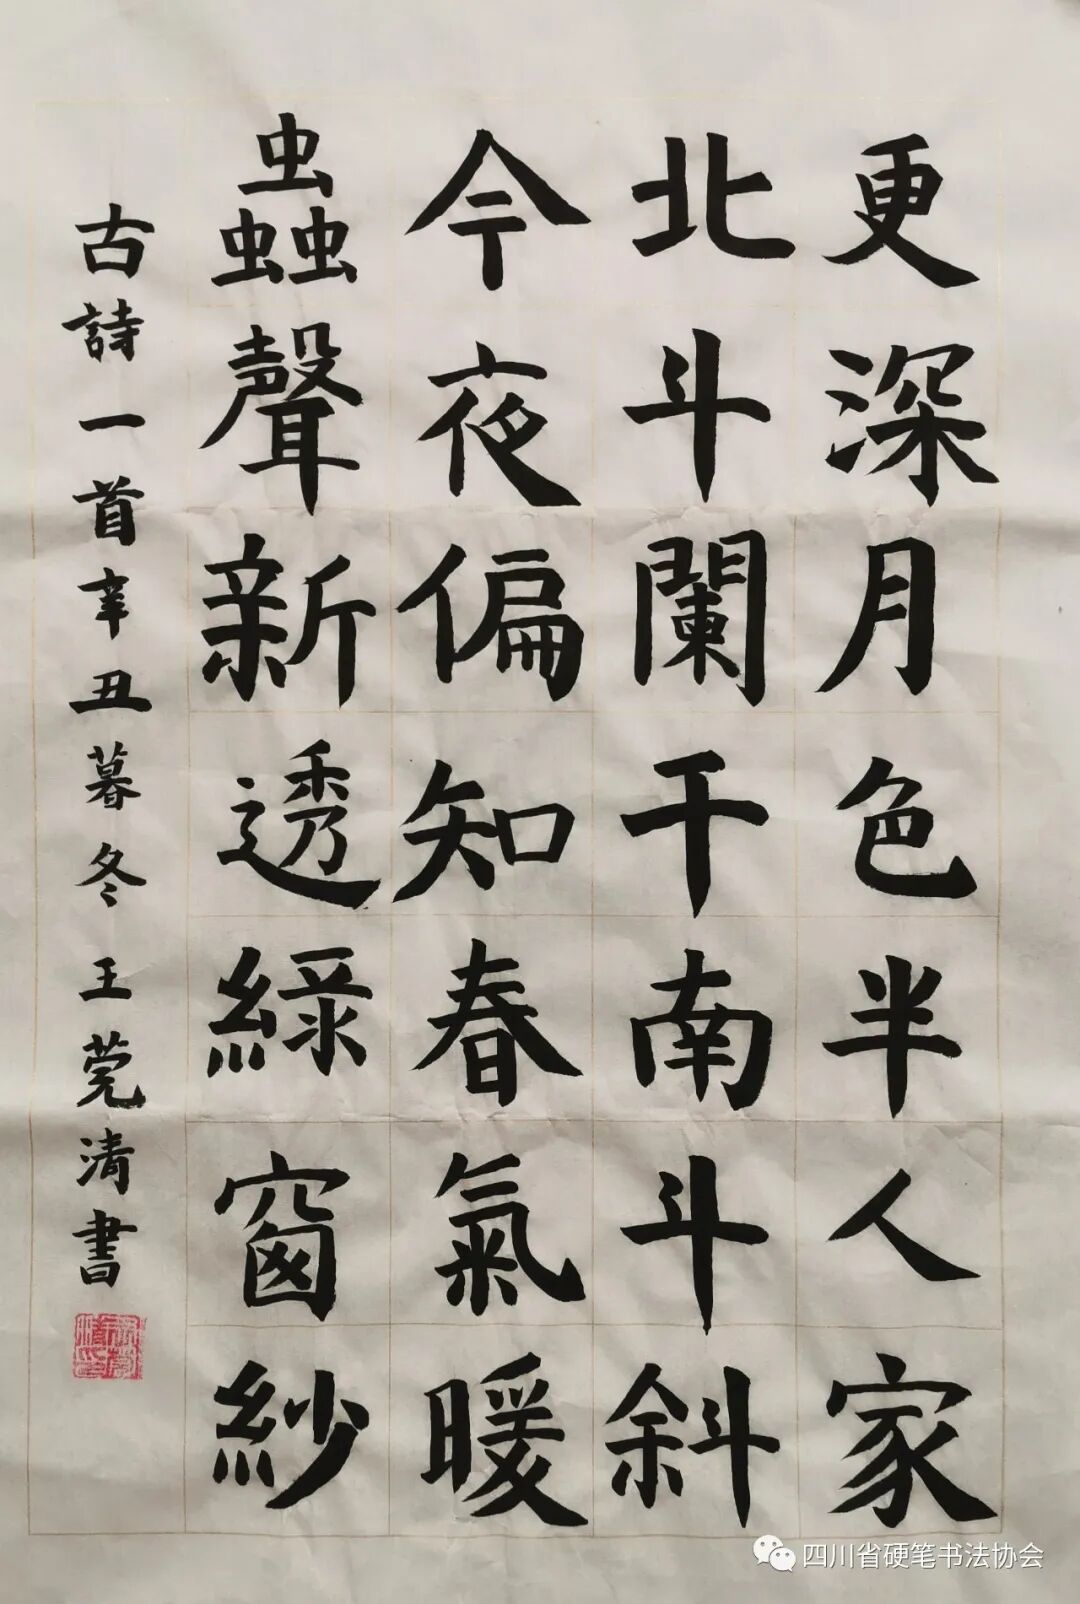 更深月色半人家
北斗闌干南斗斜
今夜偏知春氣暖
蟲聲新透綠窗紗
古詩一首辛丑暮冬王莞清書
四川省硬笔书法协会